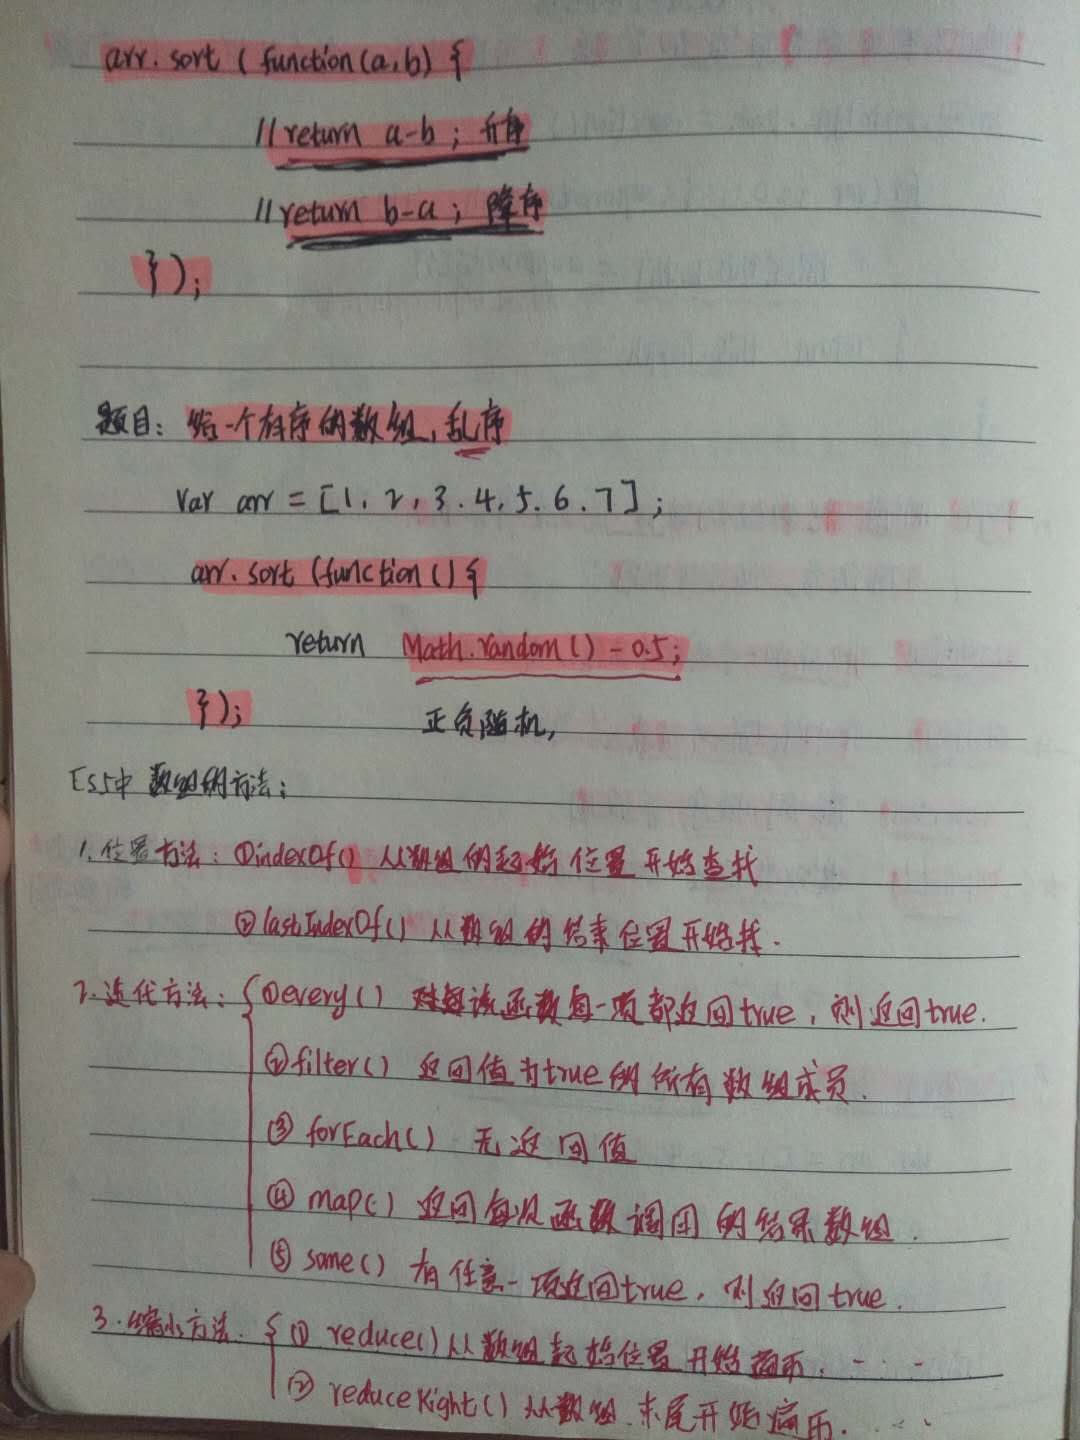 arr.sort ( function(a,b) {
//return a-b ; 升序
//return b-a ; 降序
});
题目: 给一个有序的数组, 乱序
var arr = [1, 2, 3, 4, 5, 6, 7];
arr.sort (function () {
return Math.random() - 0.5;
});
正负随机,
ES5中 数组的方法:
1. 位置方法: ①indexOf() 从数组的起始位置开始查找
②lastIndexOf() 从数组的结束位置开始找.
2. 迭代方法: { ①every() 该函数每一项都返回true, 则返回true.
②filter() 返回值为true的所有数组成员.
③ forEach() 无返回值
④ map() 返回每次函数调用的结果数组.
⑤ some() 有任意一项返回true, 则返回true.
3. 缩小方法. { ① reduce() 从数组起始位置开始遍历. . . .
② reduceRight() 从数组末尾开始遍历. . . .